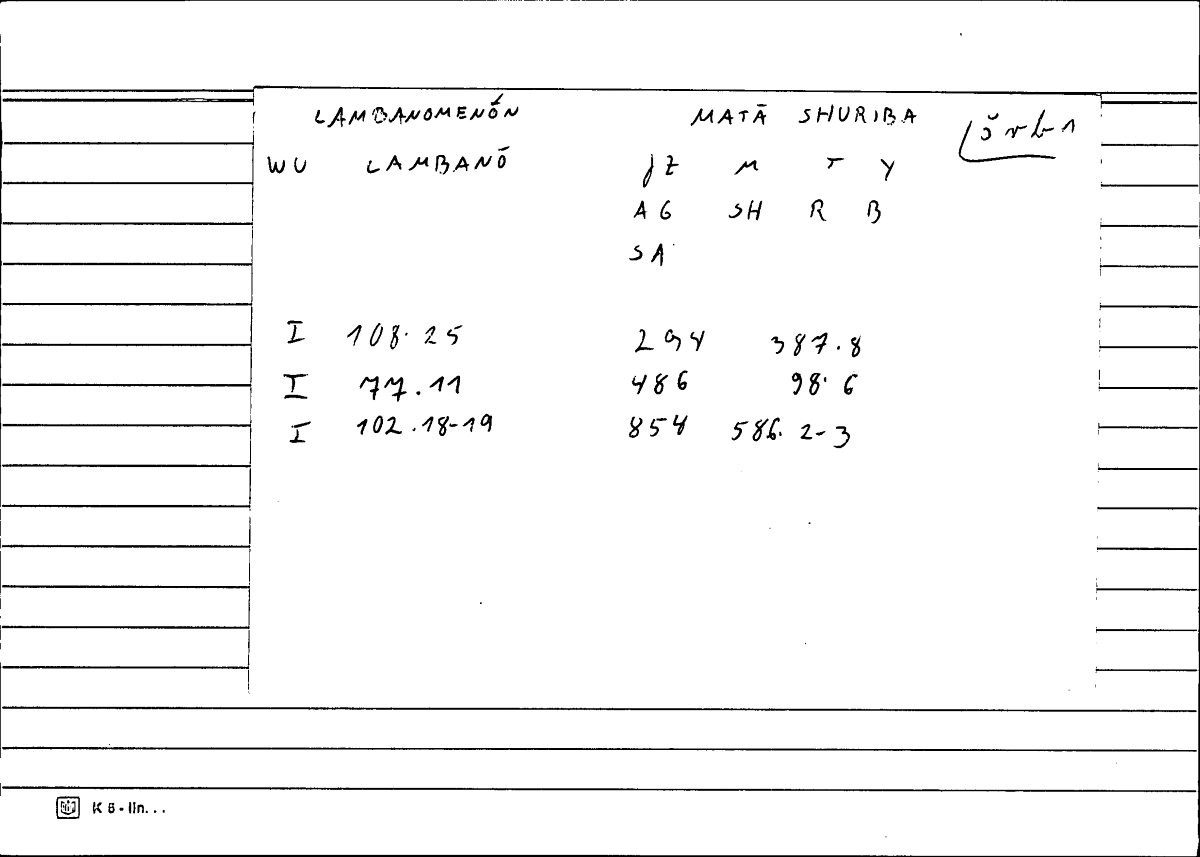 LAMBANOMENŌ̃N MATĀ SHURIBA šrb1
WU LAMBANŌ JZ M T Y
AG SH R B
SA
I 108.25 294 387.8
I 77.11 486 98.6
I 102.18-19 854 586.2-3
K 6 - lin...